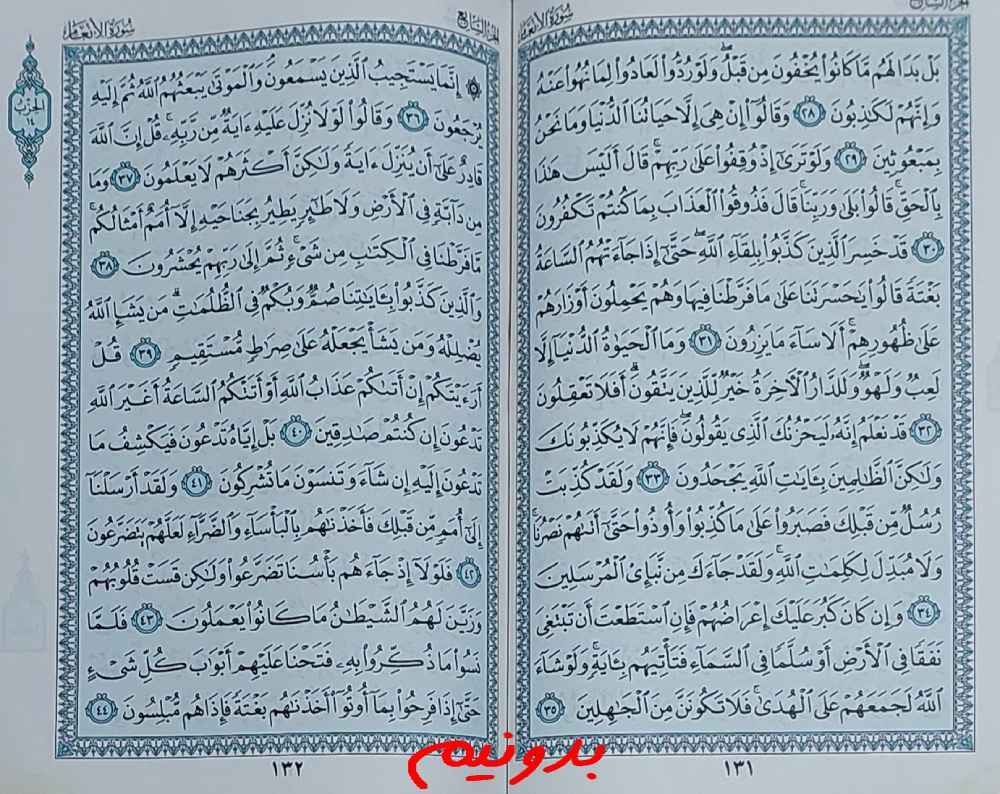 سورة الأنعام
الجزء السابع
بَلْ بَدَا لَهُم مَّا كَانُوا۟ يُخْفُونَ مِن قَبْلُ ۖ وَلَوْ رُدُّوا۟ لَعَادُوا۟ لِمَا نُهُوا۟ عَنْهُ
وَإِنَّهُمْ لَكَٰذِبُونَ ٢٨ وَقَالُوٓا۟ إِنْ هِىَ إِلَّا حَيَاتُنَا ٱلدُّنْيَا وَمَا نَحْنُ
بِمَبْعُوثِينَ ٢٩ وَلَوْ تَرَىٰٓ إِذْ وُقِفُوا۟ عَلَىٰ رَبِّهِمْ ۚ قَالَ أَلَيْسَ هَٰذَا
بِٱلْحَقِّ ۚ قَالُوا۟ بَلَىٰ وَرَبِّنَا ۚ قَالَ فَذُوقُوا۟ ٱلْعَذَابَ بِمَا كُنتُمْ تَكْفُرُونَ
٣٠ قَدْ خَسِرَ ٱلَّذِينَ كَذَّبُوا۟ بِلِقَآءِ ٱللَّهِ ۖ حَتَّىٰٓ إِذَا جَآءَتْهُمُ ٱلسَّاعَةُ
بَغْتَةً قَالُوا۟ يَٰحَسْرَتَنَا عَلَىٰ مَا فَرَّطْنَا فِيهَا وَهُمْ يَحْمِلُونَ أَوْزَارَهُمْ
عَلَىٰ ظُهُورِهِمْ ۚ أَلَا سَآءَ مَا يَزِرُونَ ٣١ وَمَا ٱلْحَيَوٰةُ ٱلدُّنْيَآ إِلَّا
لَعِبٌ وَلَهْوٌ ۖ وَلَلدَّارُ ٱلْءَاخِرَةُ خَيْرٌ لِّلَّذِينَ يَتَّقُونَ ۗ أَفَلَا تَعْقِلُونَ
٣٢ قَدْ نَعْلَمُ إِنَّهُۥ لَيَحْزُنُكَ ٱلَّذِى يَقُولُونَ ۖ فَإِنَّهُمْ لَا يُكَذِّبُونَكَ
وَلَٰكِنَّ ٱلظَّٰلِمِينَ بِـَٔايَٰتِ ٱللَّهِ يَجْحَدُونَ ٣٣ وَلَقَدْ كُذِّبَتْ
رُسُلٌ مِّن قَبْلِكَ فَصَبَرُوا۟ عَلَىٰ مَا كُذِّبُوا۟ وَأُوذُوا۟ حَتَّىٰٓ أَتَىٰهُمْ نَصْرُنَا ۚ
وَلَا مُبَدِّلَ لِكَلِمَٰتِ ٱللَّهِ ۚ وَلَقَدْ جَآءَكَ مِن نَّبَإِى۟ ٱلْمُرْسَلِينَ
٣٤ وَإِن كَانَ كَبُرَ عَلَيْكَ إِعْرَاضُهُمْ فَإِنِ ٱسْتَطَعْتَ أَن تَبْتَغِىَ
نَفَقًا فِى ٱلْأَرْضِ أَوْ سُلَّمًا فِى ٱلسَّمَآءِ فَتَأْتِيَهُم بِـَٔايَةٍ ۚ وَلَوْ شَآءَ
ٱللَّهُ لَجَمَعَهُمْ عَلَى ٱلْهُدَىٰ ۚ فَلَا تَكُونَنَّ مِنَ ٱلْجَٰهِلِينَ ٣٥
١٣١
الجزء السابع
سورة الأنعام
الحزب
١٤
۞ إِنَّمَا يَسْتَجِيبُ ٱلَّذِينَ يَسْمَعُونَ ۘ وَٱلْمَوْتَىٰ يَبْعَثُهُمُ ٱللَّهُ ثُمَّ إِلَيْهِ
يُرْجَعُونَ ٣٦ وَقَالُوا۟ لَوْلَا نُزِّلَ عَلَيْهِ ءَايَةٌ مِّن رَّبِّهِۦ ۚ قُلْ إِنَّ ٱللَّهَ
قَادِرٌ عَلَىٰٓ أَن يُنَزِّلَ ءَايَةً وَلَٰكِنَّ أَكْثَرَهُمْ لَا يَعْلَمُونَ ٣٧ وَمَا
مِن دَآبَّةٍ فِى ٱلْأَرْضِ وَلَا طَٰٓئِرٍ يَطِيرُ بِجَنَاحَيْهِ إِلَّآ أُمَمٌ أَمْثَالُكُم ۚ
مَّا فَرَّطْنَا فِى ٱلْكِتَٰبِ مِن شَىْءٍ ۚ ثُمَّ إِلَىٰ رَبِّهِمْ يُحْشَرُونَ ٣٨
وَٱلَّذِينَ كَذَّبُوا۟ بِـَٔايَٰتِنَا صُمٌّ وَبُكْمٌ فِى ٱلظُّلُمَٰتِ ۗ مَن يَشَإِ ٱللَّهُ
يُضْلِلْهُ وَمَن يَشَأْ يَجْعَلْهُ عَلَىٰ صِرَٰطٍ مُّسْتَقِيمٍ ٣٩ قُلْ
أَرَءَيْتَكُمْ إِنْ أَتَىٰكُمْ عَذَابُ ٱللَّهِ أَوْ أَتَتْكُمُ ٱلسَّاعَةُ أَغَيْرَ ٱللَّهِ
تَدْعُونَ إِن كُنتُمْ صَٰدِقِينَ ٤٠ بَلْ إِيَّاهُ تَدْعُونَ فَيَكْشِفُ مَا
تَدْعُونَ إِلَيْهِ إِن شَآءَ وَتَنسَوْنَ مَا تُشْرِكُونَ ٤١ وَلَقَدْ أَرْسَلْنَآ
إِلَىٰٓ أُمَمٍ مِّن قَبْلِكَ فَأَخَذْنَٰهُم بِٱلْبَأْسَآءِ وَٱلضَّرَّآءِ لَعَلَّهُمْ يَتَضَرَّعُونَ
٤٢ فَلَوْلَآ إِذْ جَآءَهُم بَأْسُنَا تَضَرَّعُوا۟ وَلَٰكِن قَسَتْ قُلُوبُهُمْ
وَزَيَّنَ لَهُمُ ٱلشَّيْطَٰنُ مَا كَانُوا۟ يَعْمَلُونَ ٤٣ فَلَمَّا
نَسُوا۟ مَا ذُكِّرُوا۟ بِهِۦ فَتَحْنَا عَلَيْهِمْ أَبْوَٰبَ كُلِّ شَىْءٍ
حَتَّىٰٓ إِذَا فَرِحُوا۟ بِمَآ أُوتُوٓا۟ أَخَذْنَٰهُم بَغْتَةً فَإِذَا هُم مُّبْلِسُونَ ٤٤
١٣٢
بدونیم